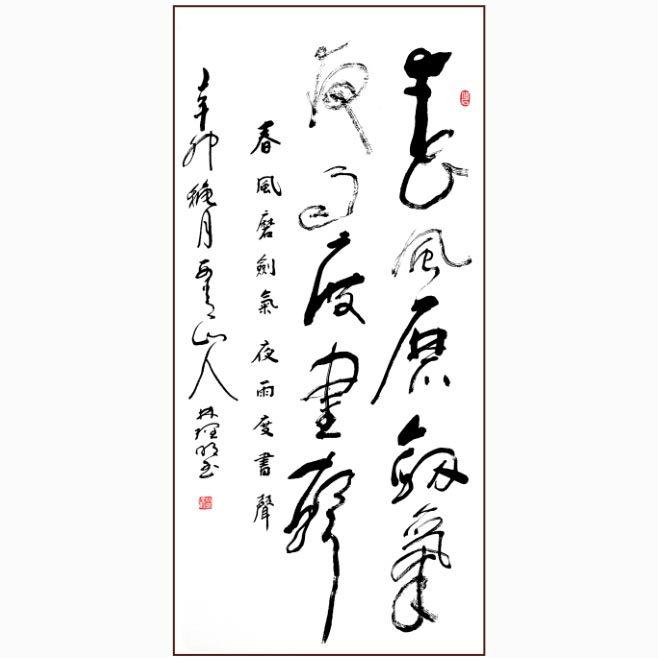 春風磨劍氣
夜雨度書聲
春風磨劍氣 夜雨度書聲
辛卯
月
山人
林